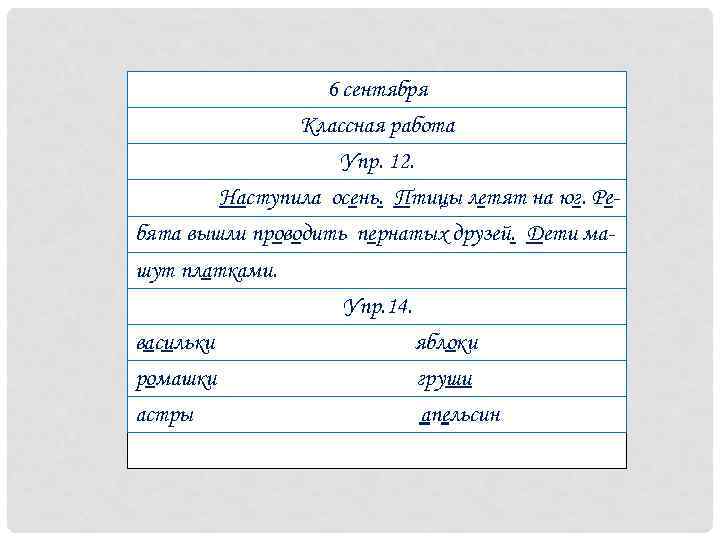 6 сентября
Классная работа
Упр. 12.
Наступила осень. Птицы летят на юг. Ре-
бята вышли проводить пернатых друзей. Дети ма-
шут платками.
Упр.14.
васильки яблоки
ромашки груши
астры апельсин